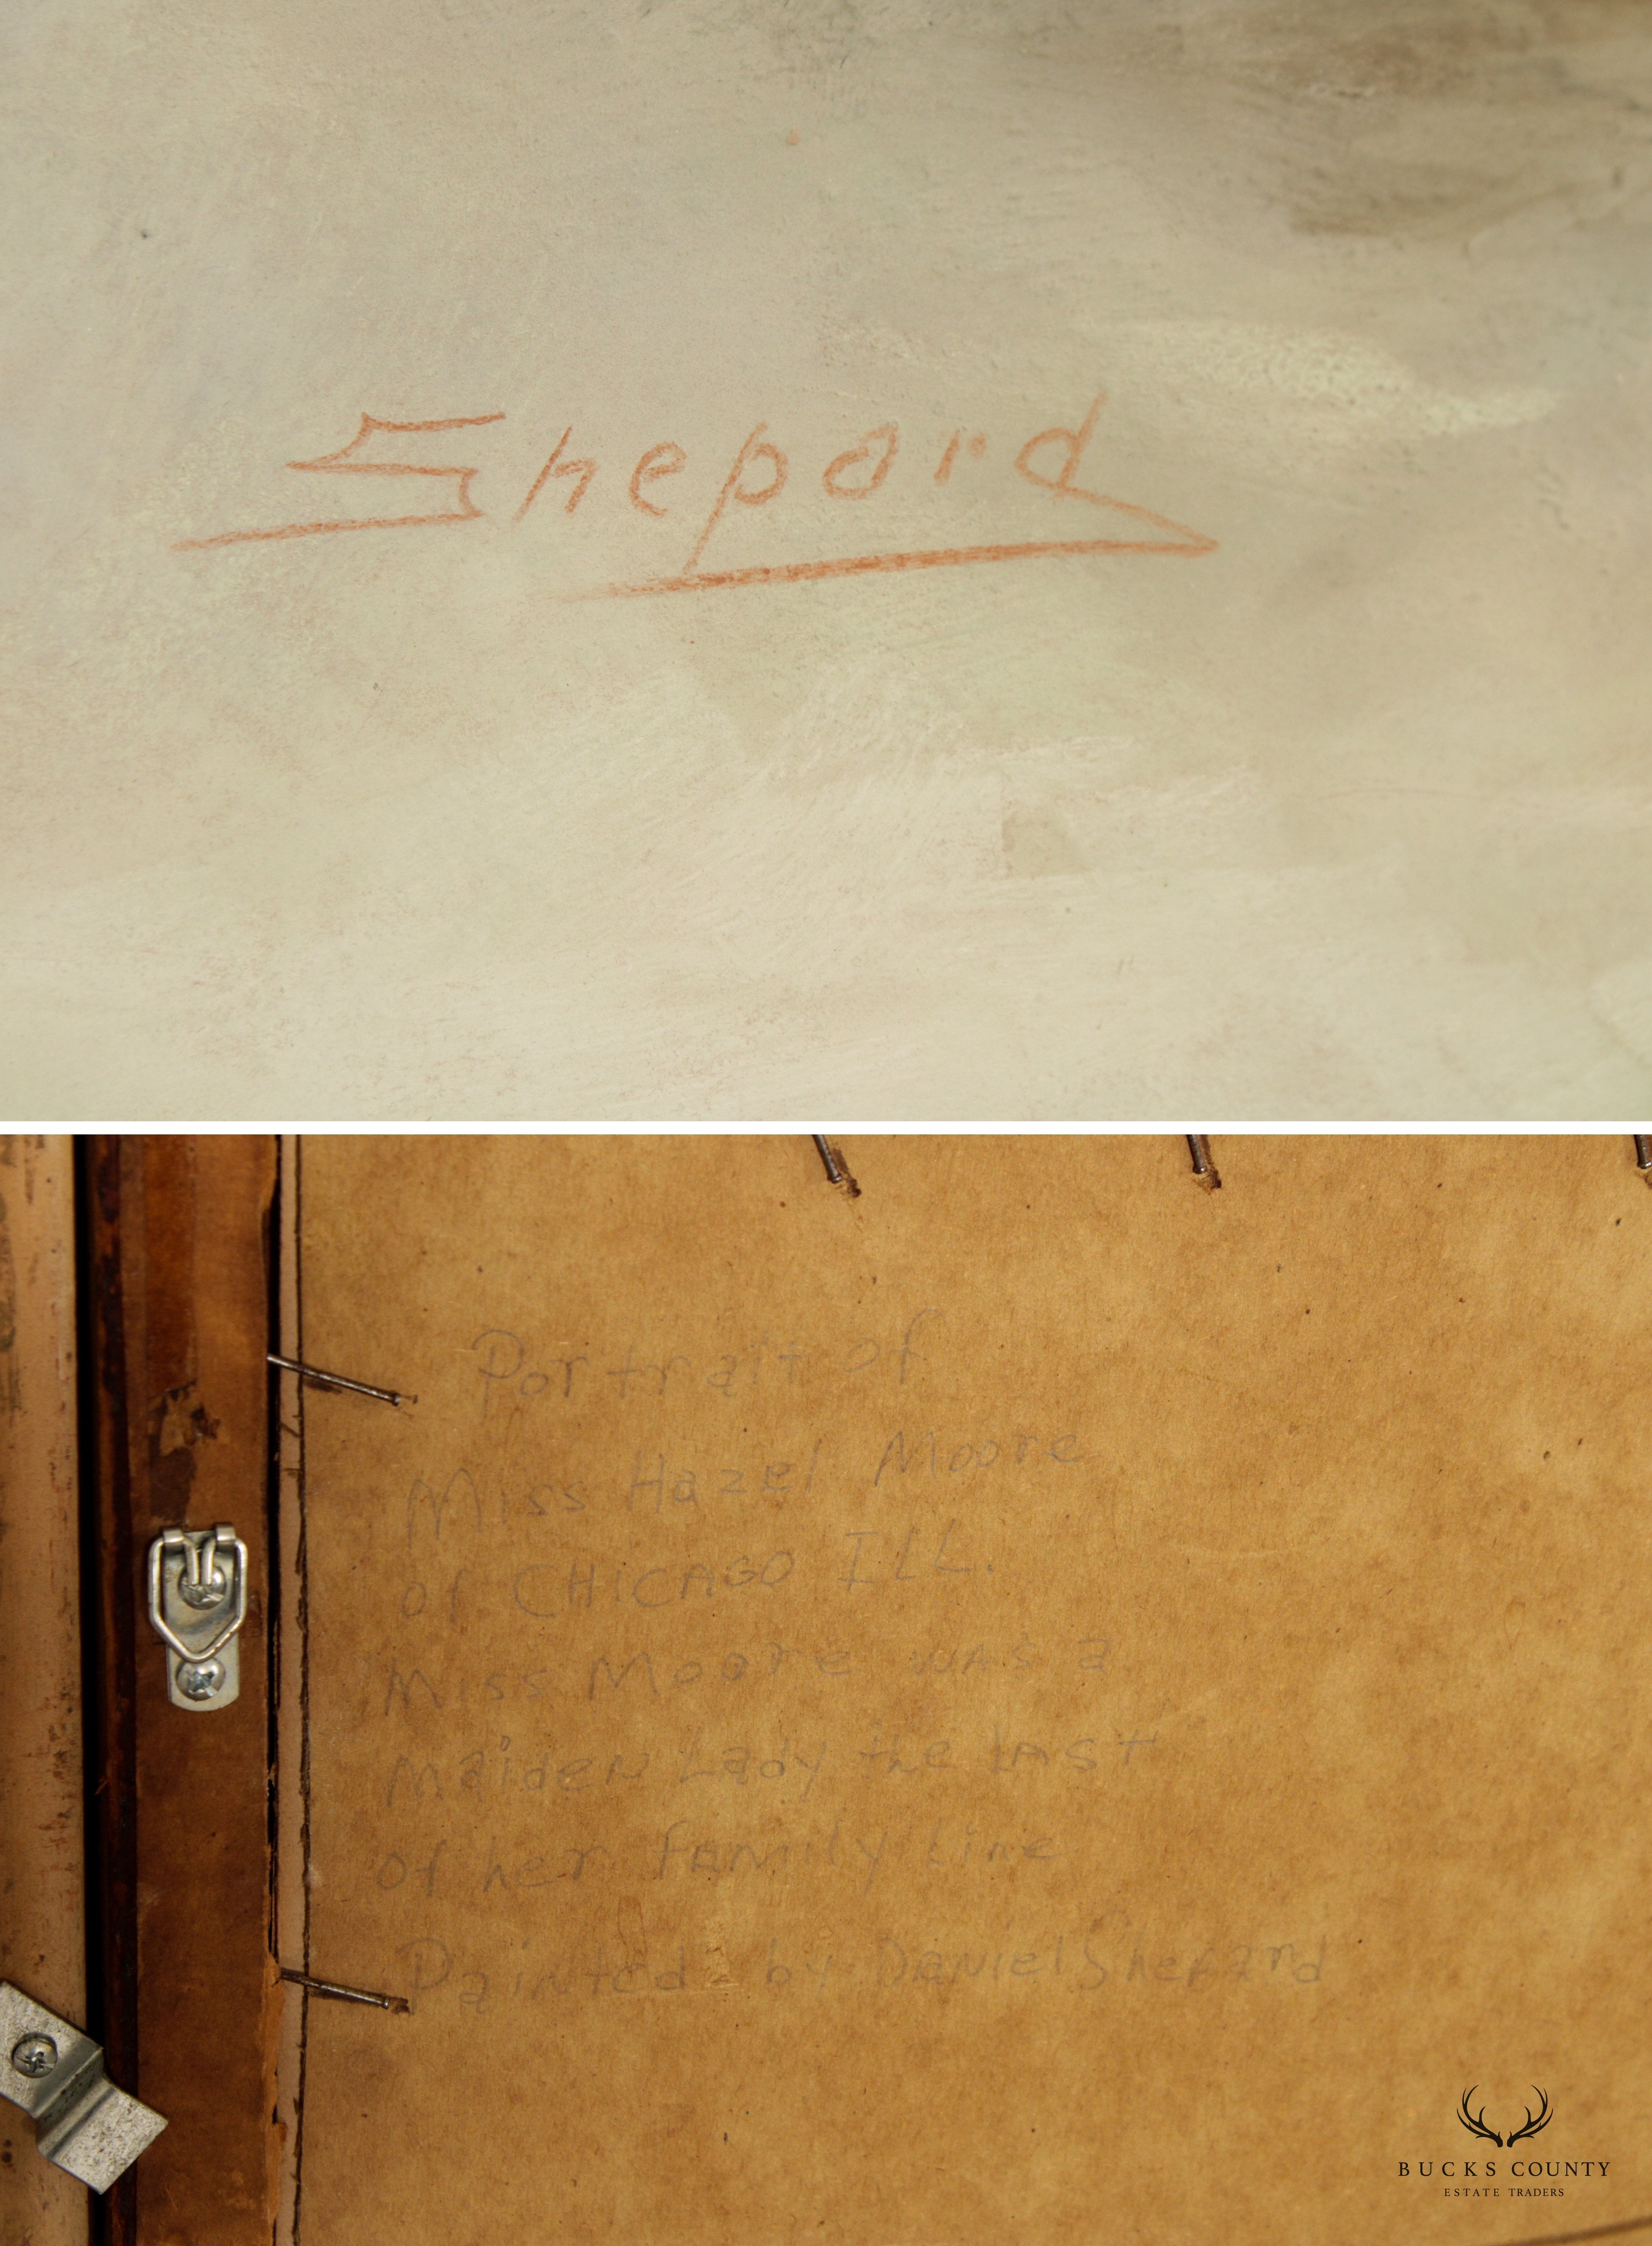 Shepard
Portrait of
Miss Hazel Moore
of CHiCAGO ILL.
Miss Moore WAS a
MaideN Lady the LAST
of her FAMily Line
Painted by DANiel Shepard
BUCKS COUNTY
ESTATE TRADERS